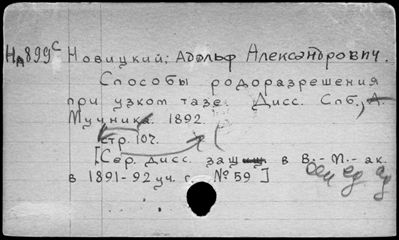 На899с Новицкий, Адольф Александрович.
Способы родоразрешения
при узком тазе. Дисс. Спб., А.
Мучника. 1892.
стр. 107.
[Сер. дисс. защ в В.-М.-ак.
в 1891-92 уч. г. № 59]